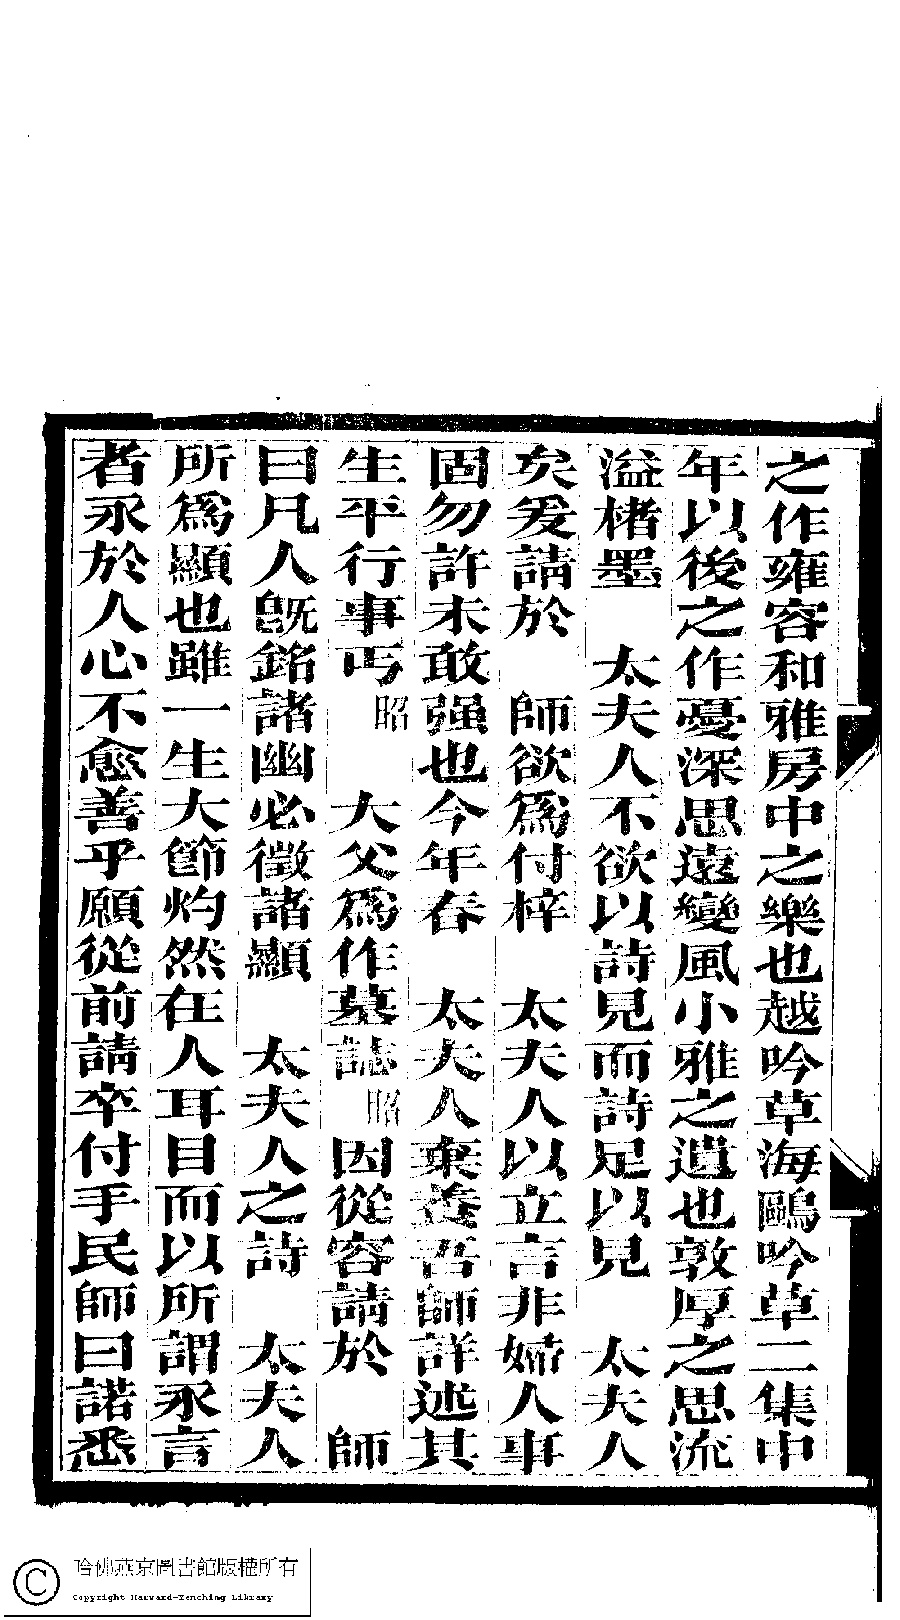 之作雍容和雅房中之樂也越吟草海鷗吟草二集中
年以後之作憂深思遠變風小雅之遺也敦厚之思流
溢楮墨　太夫人不欲以詩見而詩足以見　太夫人
矣爰請於　師欲爲付梓　太夫人以立言非婦人事
固勿許未敢强也今年春　太夫人棄養吾師詳述其
生平行事丐昭　大父爲作墓誌昭因從容請於　師
曰凡人旣銘諸幽必徵諸顯　太夫人之詩　太夫人
所爲顯也雖一生大節灼然在人耳目而以所謂永言
者永於人心不愈善乎願從前請卒付手民師曰諾悉
哈佛燕京圖書館版權所有
Copyright Harvard-Yenching Library